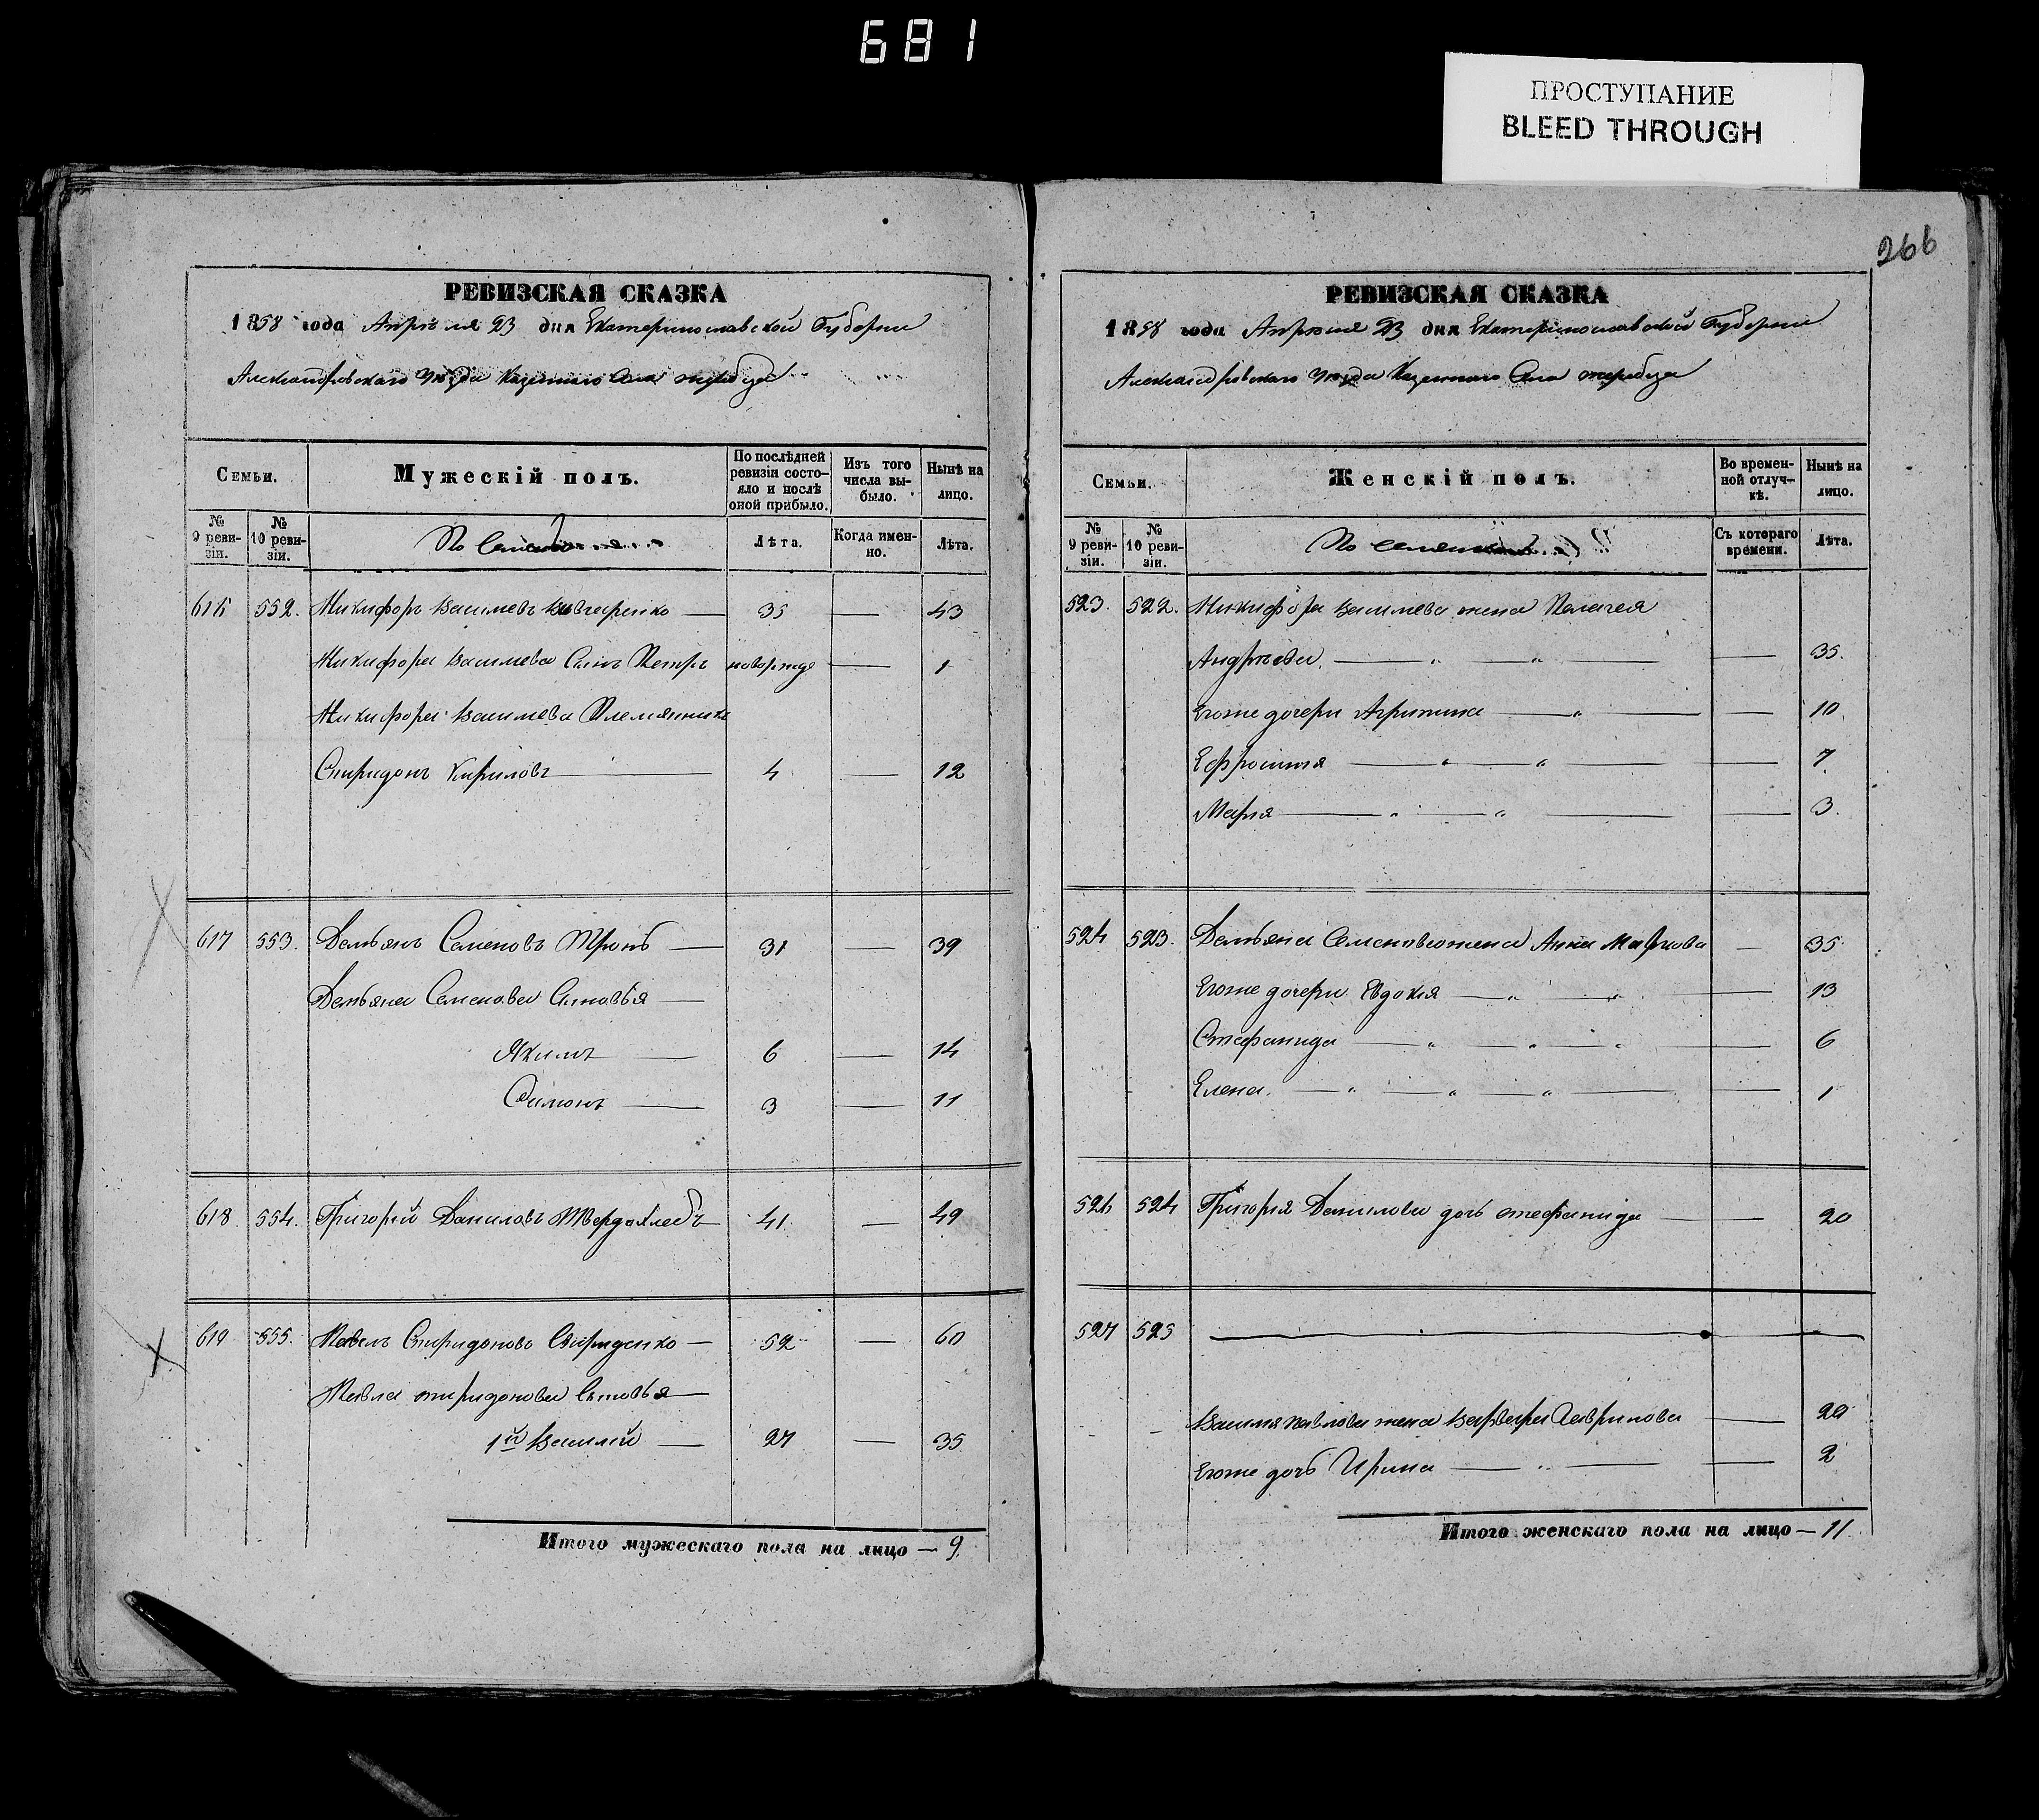 681
ПРОСТУПАНИЕ
BLEED THROUGH
266
РЕВИЗСКАЯ СКАЗКА
1858 года Апреля 23 дня Екатеринославской Губернии
Александровскаго Уезда Казеннаго Села
Семьи.
Мужескій полъ.
По послѣдней ревизіи состо-
яло и послѣ оной прибыло.
Изъ того числа вы-
было.
Нынѣ на лицо.
№ 9 реви-
зіи.
№ 10 реви-
зіи.
Лѣта.
Когда имен-
но.
Лѣта.
616 552. Никифоръ Васильевъ — 35 — 43
Никифора Васильева Сынъ Петръ новорожде — 1
Никифора Васильева Племянникъ
Спиридонъ Кириловъ — 4 — 12
617 553. Демьянъ Семеновъ — 31 — 39
Демьяна Семенова Сыновья —
Якимъ — 6 — 14
Симонъ — 3 — 11
618 554. Григорій Даниловъ Твердохлебъ 41 — 49
619 555. Павелъ Спиридоновъ Свириденко — 52 — 60
Павла спиридонова Сыновья —
1й Василій — 27 — 35
Итого мужескаго пола на лицо — 9.
РЕВИЗСКАЯ СКАЗКА
1858 года Апреля 23 дня Екатеринославской Губернии
Александровскаго Уезда Казеннаго Села
Семьи.
Женскій полъ.
Во времен-
ной отлуч-
кѣ.
Нынѣ на лицо.
№ 9 реви-
зіи.
№ 10 реви-
зіи.
Съ котораго времени.
Лѣта.
523. 522. Никифора Васильева жена Пелагея
Андреева. — " — " — — 35.
Егоже дочери Агрипина — " — — 10
Ефросиния — " — " — — 7
Мария — " — " — — 3.
524 523. Демьяна Семенова жена Анна Маркова — 35
Егоже дочери Евдокия — " — " — — 13
Стефанида — " — " — " — — 6
Елена. — " — " — " — — 1
524 Григория Данилова дочь стефанида — — 20
527 525
Василя павлова жена Варвара Гаврилова —
Егоже дочь Ирина — " — — 2
Итого женскаго пола на лицо — 11.